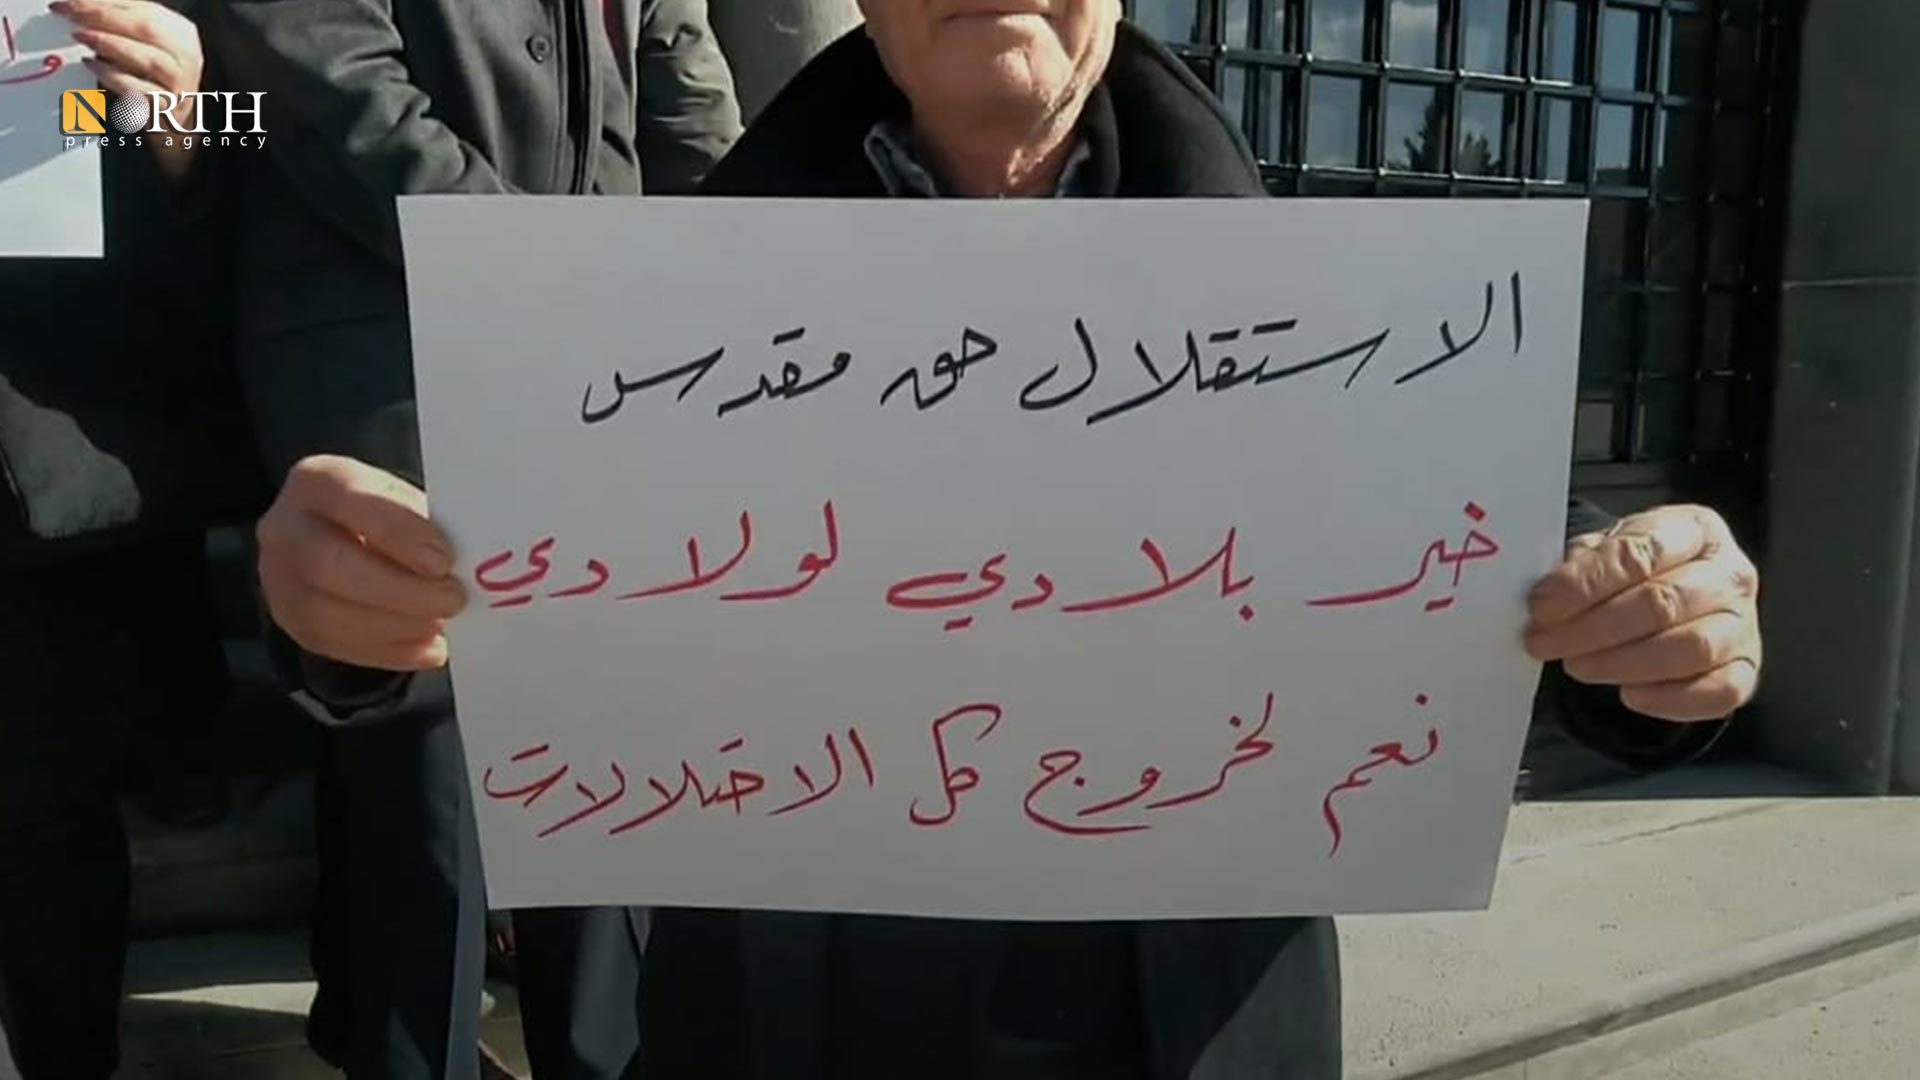 NORTH
press agency
الاستقلال حق مقدس
خير بلادي لولادي
نعم لخروج كل الاحتلالات